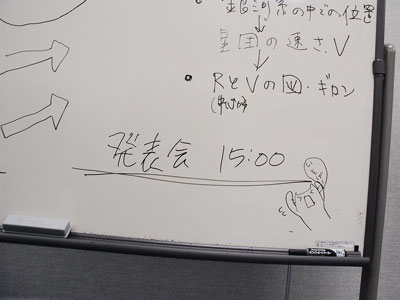 銀河系の中での位置
星団の速さV
RとVの図・ギロン
発表会 15:00